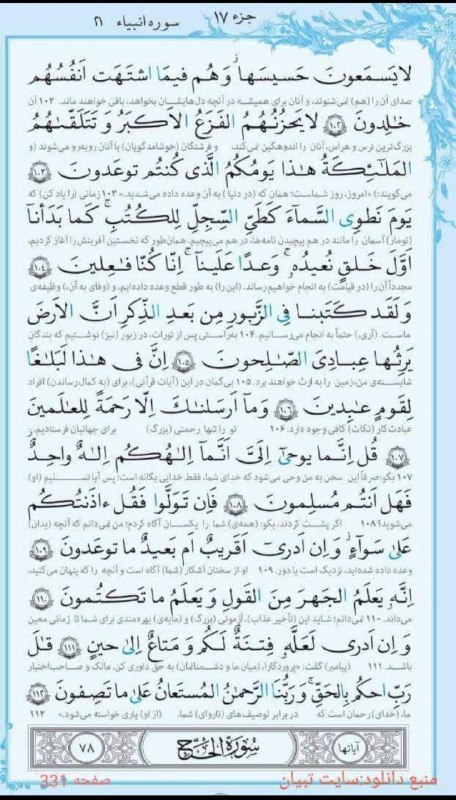 جزء ۱۷
سوره انبیاء ۲۱
لا یَسمَعونَ حَسیسَها ۖ وَ هُم فیمَا اشتَهَت اَنفُسُهُم
صدای آن را (هم) نمی‌شنوند، و آنان برای همیشه در آنچه دل‌هایشان بخواهد، باقی خواهند ماند. ۱۰۲ آن
خٰلِدونَ ﴿۱۰۲﴾ لا یَحزُنُهُمُ الفَزَعُ الاَکبَرُ وَ تَتَلَقّىٰهُمُ
بزرگ‌ترین ترس و هراس، آنان را اندوهگین نمی‌کند، و فرشتگان (خوشامدگویان) با آنان روبه‌رو می‌شوند (و
المَلٰئِکَةُ هٰذا یَومُکُمُ الَّذی کُنتُم توعَدونَ ﴿۱۰۳﴾
می‌گویند:) «امروز، روز شماست؛ همان که (در دنیا) به آن وعده داده می‌شدید.» ۱۰۳ زمانی (را یاد کن) که
یَومَ نَطوِی السَّماءَ کَطَیِّ السِّجِلِّ لِلکُتُبِ ۚ کَما بَدَأنا
(تومار) آسمان را مانند در هم پیچیدن نامه‌ها، در هم می‌پیچیم. همان‌طور که نخستین آفرینش را آغاز کردیم،
اَوَّلَ خَلقٍ نُعیدُهُ ۚ وَعدًا عَلَینا ۚ اِنّا کُنّا فٰعِلینَ ﴿۱۰۴﴾
مجدداً آن را (در قیامت) به انجام خواهیم رساند. (این را) به طور قطع وعده داده‌ایم، و (وفای به آن،) وظیفه‌ی
وَ لَقَد کَتَبنا فِی الزَّبورِ مِن بَعدِ الذِّکرِ اَنَّ الاَرضَ
ماست. (آری،) حتماً به انجام می‌رسانیم. ۱۰۴ به‌راستی پس از تورات، در زبور (نیز) نوشتیم که بندگان
یَرِثُها عِبادِیَ الصّٰلِحونَ ﴿۱۰۵﴾ اِنَّ فی هٰذا لَبَلٰغًا
شایسته‌ی من، زمین را به ارث خواهند برد. ۱۰۵ بی‌گمان در این (آیات قرآنی)، برای (به کمال رساندن) افراد
لِقَومٍ عٰبِدینَ ﴿۱۰۶﴾ وَ ما اَرسَلنٰکَ اِلّا رَحمَةً لِلعٰلَمینَ
عبادت‌کار (نکات) کافی وجود دارد. ۱۰۶ تو را تنها رحمتی (بزرگ) برای جهانیان فرستادیم.
﴿۱۰۷﴾ قُل اِنَّما یوحىٰ اِلَیَّ اَنَّما اِلٰهُکُم اِلٰهٌ واحِدٌ
۱۰۷ بگو: صرفاً این سخن به من وحی می‌شود که خدای شما، فقط خدایی یگانه است؛ پس آیا تسلیم (او)
فَهَل اَنتُم مُسلِمونَ ﴿۱۰۸﴾ فَاِن تَوَلَّوا فَقُل ءاذَنتُکُم
می‌شوید؟ ۱۰۸ اگر پشت کردند، بگو: (همه‌ی) شما را یکسان آگاه کردم؛ من نمی‌دانم که آنچه (بدان)
عَلىٰ سَواءٍ ۖ وَ اِن اَدری اَقَریبٌ اَم بَعیدٌ ما توعَدونَ ﴿۱۰۹﴾
وعده داده شده‌اید، نزدیک است یا دور. ۱۰۹ او از سخنان آشکار (شما) آگاه است و آنچه را که پنهان می‌کنید،
اِنَّهُ یَعلَمُ الجَهرَ مِنَ القَولِ وَ یَعلَمُ ما تَکتُمونَ ﴿۱۱۰﴾
می‌داند. ۱۱۰ نمی‌دانم؛ شاید این (تأخیر عذاب)، آزمونی (بزرگ) و (مایه‌ی) بهره‌مندی برای شما تا زمانی معین
وَ اِن اَدری لَعَلَّهُ فِتنَةٌ لَکُم وَ مَتاعٌ اِلىٰ حینٍ ﴿۱۱۱﴾ قٰلَ
باشد. ۱۱۱ (پیامبر) گفت: «پروردگارا، (میان ما و دشمنانمان) به حق داوری کن. مالک و صاحب‌اختیار
رَبِّ احکُم بِالحَقِّ ۗ وَ رَبُّنَا الرَّحمٰنُ المُستَعانُ عَلىٰ ما تَصِفونَ ﴿۱۱۲﴾
ما، (خدای) رحمان است که در برابر توصیف‌های (ناروای) شما، (از او) یاری خواسته می‌شود.» ۱۱۲
آیاتها
سُورَةُ الحَجّ
۷۸
منبع دانلود:سایت تبیان
صفحه 331